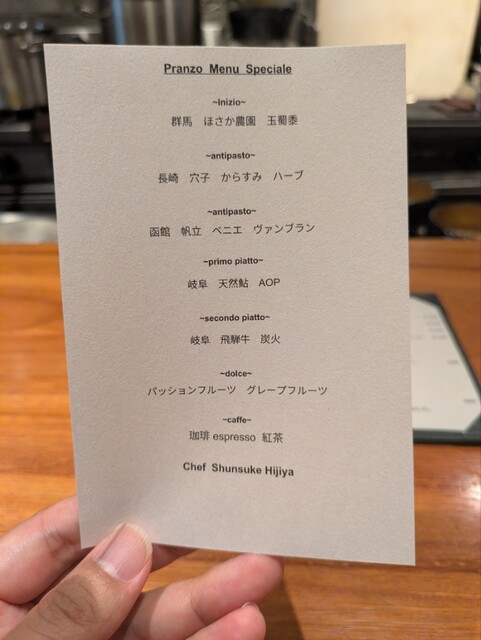 Pranzo Menu Speciale
~inizio~
群馬 ほさか農園 玉蜀黍
~antipasto~
長崎 穴子 からすみ ハーブ
~antipasto~
函館 帆立 ベニエ ヴァンブラン
~primo piatto~
岐阜 天然鮎 AOP
~secondo piatto~
岐阜 飛騨牛 炭火
~dolce~
パッションフルーツ グレープフルーツ
~caffe~
珈琲 espresso 紅茶
Chef Shunsuke Hijiya